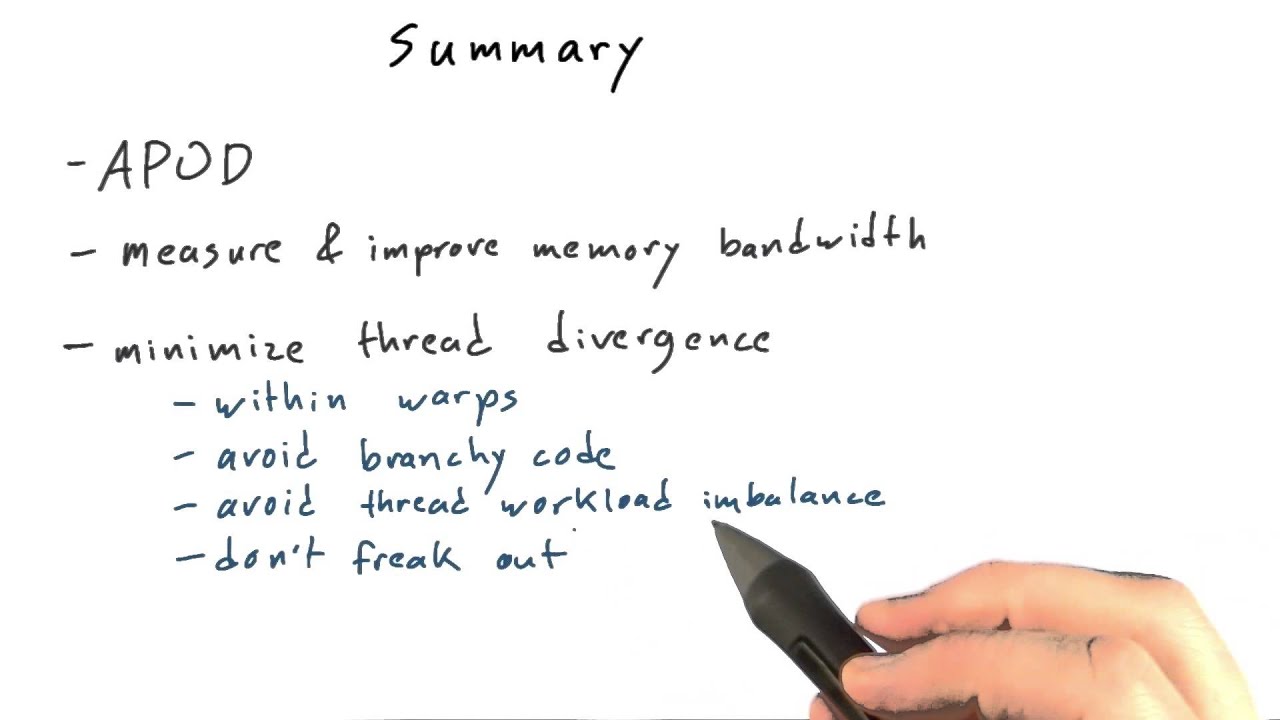 Summary
- APOD
- measure & improve memory bandwidth
- minimize thread divergence
- within warps
- avoid branchy code
- avoid thread workload imbalance
- don't freak out